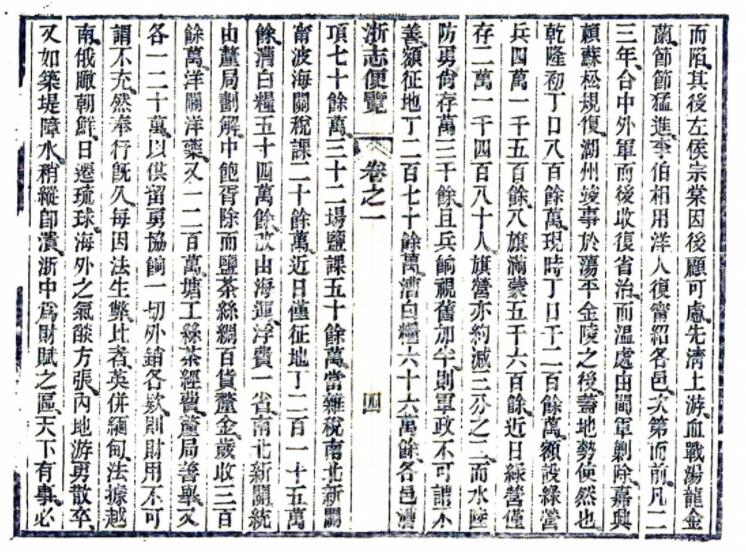 而陷其後左侯宗棠因後顧可慮先清上游血戰湯龍金
蘭節節猛進李伯相用洋人復甯紹各邑次第而前凡二
三年合中外軍而後收復省治而温處由閩軍剿除嘉興
賴蘇松規復湖州竣事於蕩平金陵之後蓋地勢使然也
乾隆初丁口八百餘萬現時丁口千二百餘萬額設綠營
兵四萬一千五百餘八旗滿蒙五千六百餘近日綠營僅
存二萬一千四百八十人旗營亦約減三分之二而水陸
防勇尙存萬三千餘且兵餉視舊加半則軍政不可謂不
善額征地丁二百七十餘萬漕白糧六十六萬餘各邑漕
浙志便覽 卷之一 四
項七十餘萬三十二場鹽課五十餘萬當雜稅南北新關
甯波海關稅課二十餘萬近日僅征地丁二百一十五萬
餘漕白糧五十四萬餘故由海運浮費一省南北新關統
由釐局劃解中飽胥除而鹽茶絲綢百貨釐金歲收三百
餘萬洋關洋藥又一二百萬塘工絲茶經費釐局善舉又
各一二十萬以供留勇協餉一切外銷各款則財用不可
謂不充然奉行旣久每因法生弊比者英併緬甸法據越
南俄瞰朝鮮日遷琉球海外之氣燄方張內地游勇散卒
又如築堤障水稍縱卽潰浙中爲財賦之區天下有事必